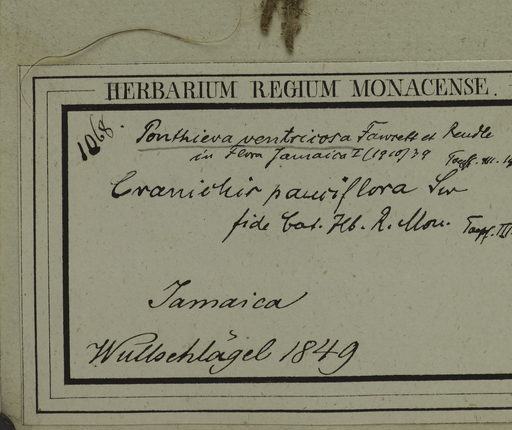 HERBARIUM REGIUM MONACENSE.
1068.
Ponthieva ventricosa Fawcett et Rendle
in Flora Jamaica I (1910) 39
Cranichis pauciflora Sw
fide Cat. Hb. R. Mon.
Jamaica
Wullschlägel 1849